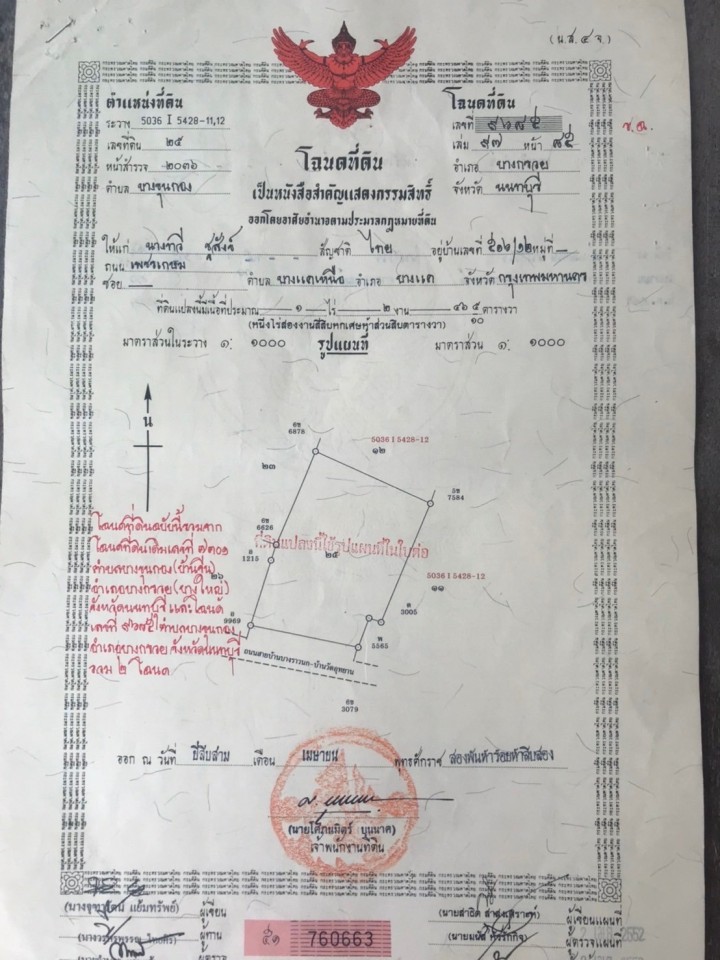 (น.ส. ๔ จ.)
ตำแหน่งที่ดิน
ระวาง 5036 I 5428-11,12
เลขที่ดิน ๒๕
หน้าสำรวจ ๒๐๓๖
ตำบล บางขุนกอง
โฉนดที่ดิน
เลขที่ ๙๖๘๕
เล่ม ๙๗ หน้า ๘๕
อำเภอ บางกรวย
จังหวัด นนทบุรี
โฉนดที่ดิน
เป็นหนังสือสำคัญแสดงกรรมสิทธิ์
ออกโดยอาศัยอำนาจตามประมวลกฎหมายที่ดิน
ให้แก่ นางทวี สัญชาติ ไทย อยู่บ้านเลขที่ หมู่ที่ —
ถนน เพชรเกษม
ซอย — ตำบล บางแคเหนือ อำเภอ บางแค จังหวัด กรุงเทพมหานคร
ที่ดินแปลงนี้มีเนื้อที่ประมาณ ๑ ไร่ ๒ งาน ๔๖ ๕/๑๐ ตารางวา
(หนึ่งไร่สองงานสี่สิบหกเศษห้าส่วนสิบตารางวา)
มาตราส่วนในระวาง ๑: ๑๐๐๐ รูปแผนที่ มาตราส่วน ๑: ๑๐๐๐
น
6878
5036 I 5428-12
๑๒
๒๓
5ช
7584
6626
1215
ที่ดินแปลงนี้ใช้รูปแผนที่ในใบต่อ
๒๕
๒๖
5036 I 5428-12
๑๑
3005
9969
5565
ถนนสายบ้านบางราวนก-บ้านวัดอุทยาน
3079
โฉนดที่ดินฉบับนี้รวมจาก
โฉนดที่ดินเดิมเลขที่ ๗๓๐๑
ตำบลบางขุนกอง(บ้านจีน)
อำเภอบางกรวย(บางใหญ่)
จังหวัดนนทบุรี และโฉนด
เลขที่ ๙๖๘๕ ตำบลบางขุนกอง
อำเภอบางกรวย จังหวัดนนทบุรี
รวม ๒ โฉนด
ออก ณ วันที่ ยี่สิบสาม เดือน เมษายน พุทธศักราช สองพันห้าร้อยห้าสิบสอง
(นายโศภนมิตร์ บุนนาค)
เจ้าพนักงานที่ดิน
แย้มทรัพย์) ผู้เขียน
ผู้ทาน
ผู้ตรวจ
๕๑ 760663
(นายสาธิต ผู้เขียนแผนที่
(นายมนัส ผู้ตรวจแผนที่
2552